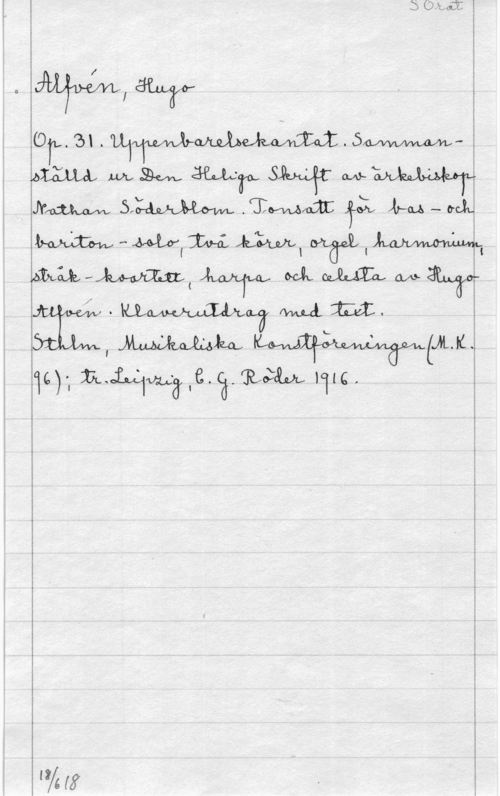 S Orat
Alfvén, Hugo
Op. 31. Uppenbarelsekantat. Samman-
ställd ur Den Heliga Skrift av ärkebiskop
Nathan Söderblom. Tonsatt för bas - och
bariton - solo, två körer, orgel, harmonium,
stråk - kvartett, harpa och celesta av Hugo
Alfvén. Klaverutdrag med text.
Sthlm, Musikaliska Konstföreningen (M.K.
96); tr. Leipzig, C. G. Röder 1916.
18/6 18